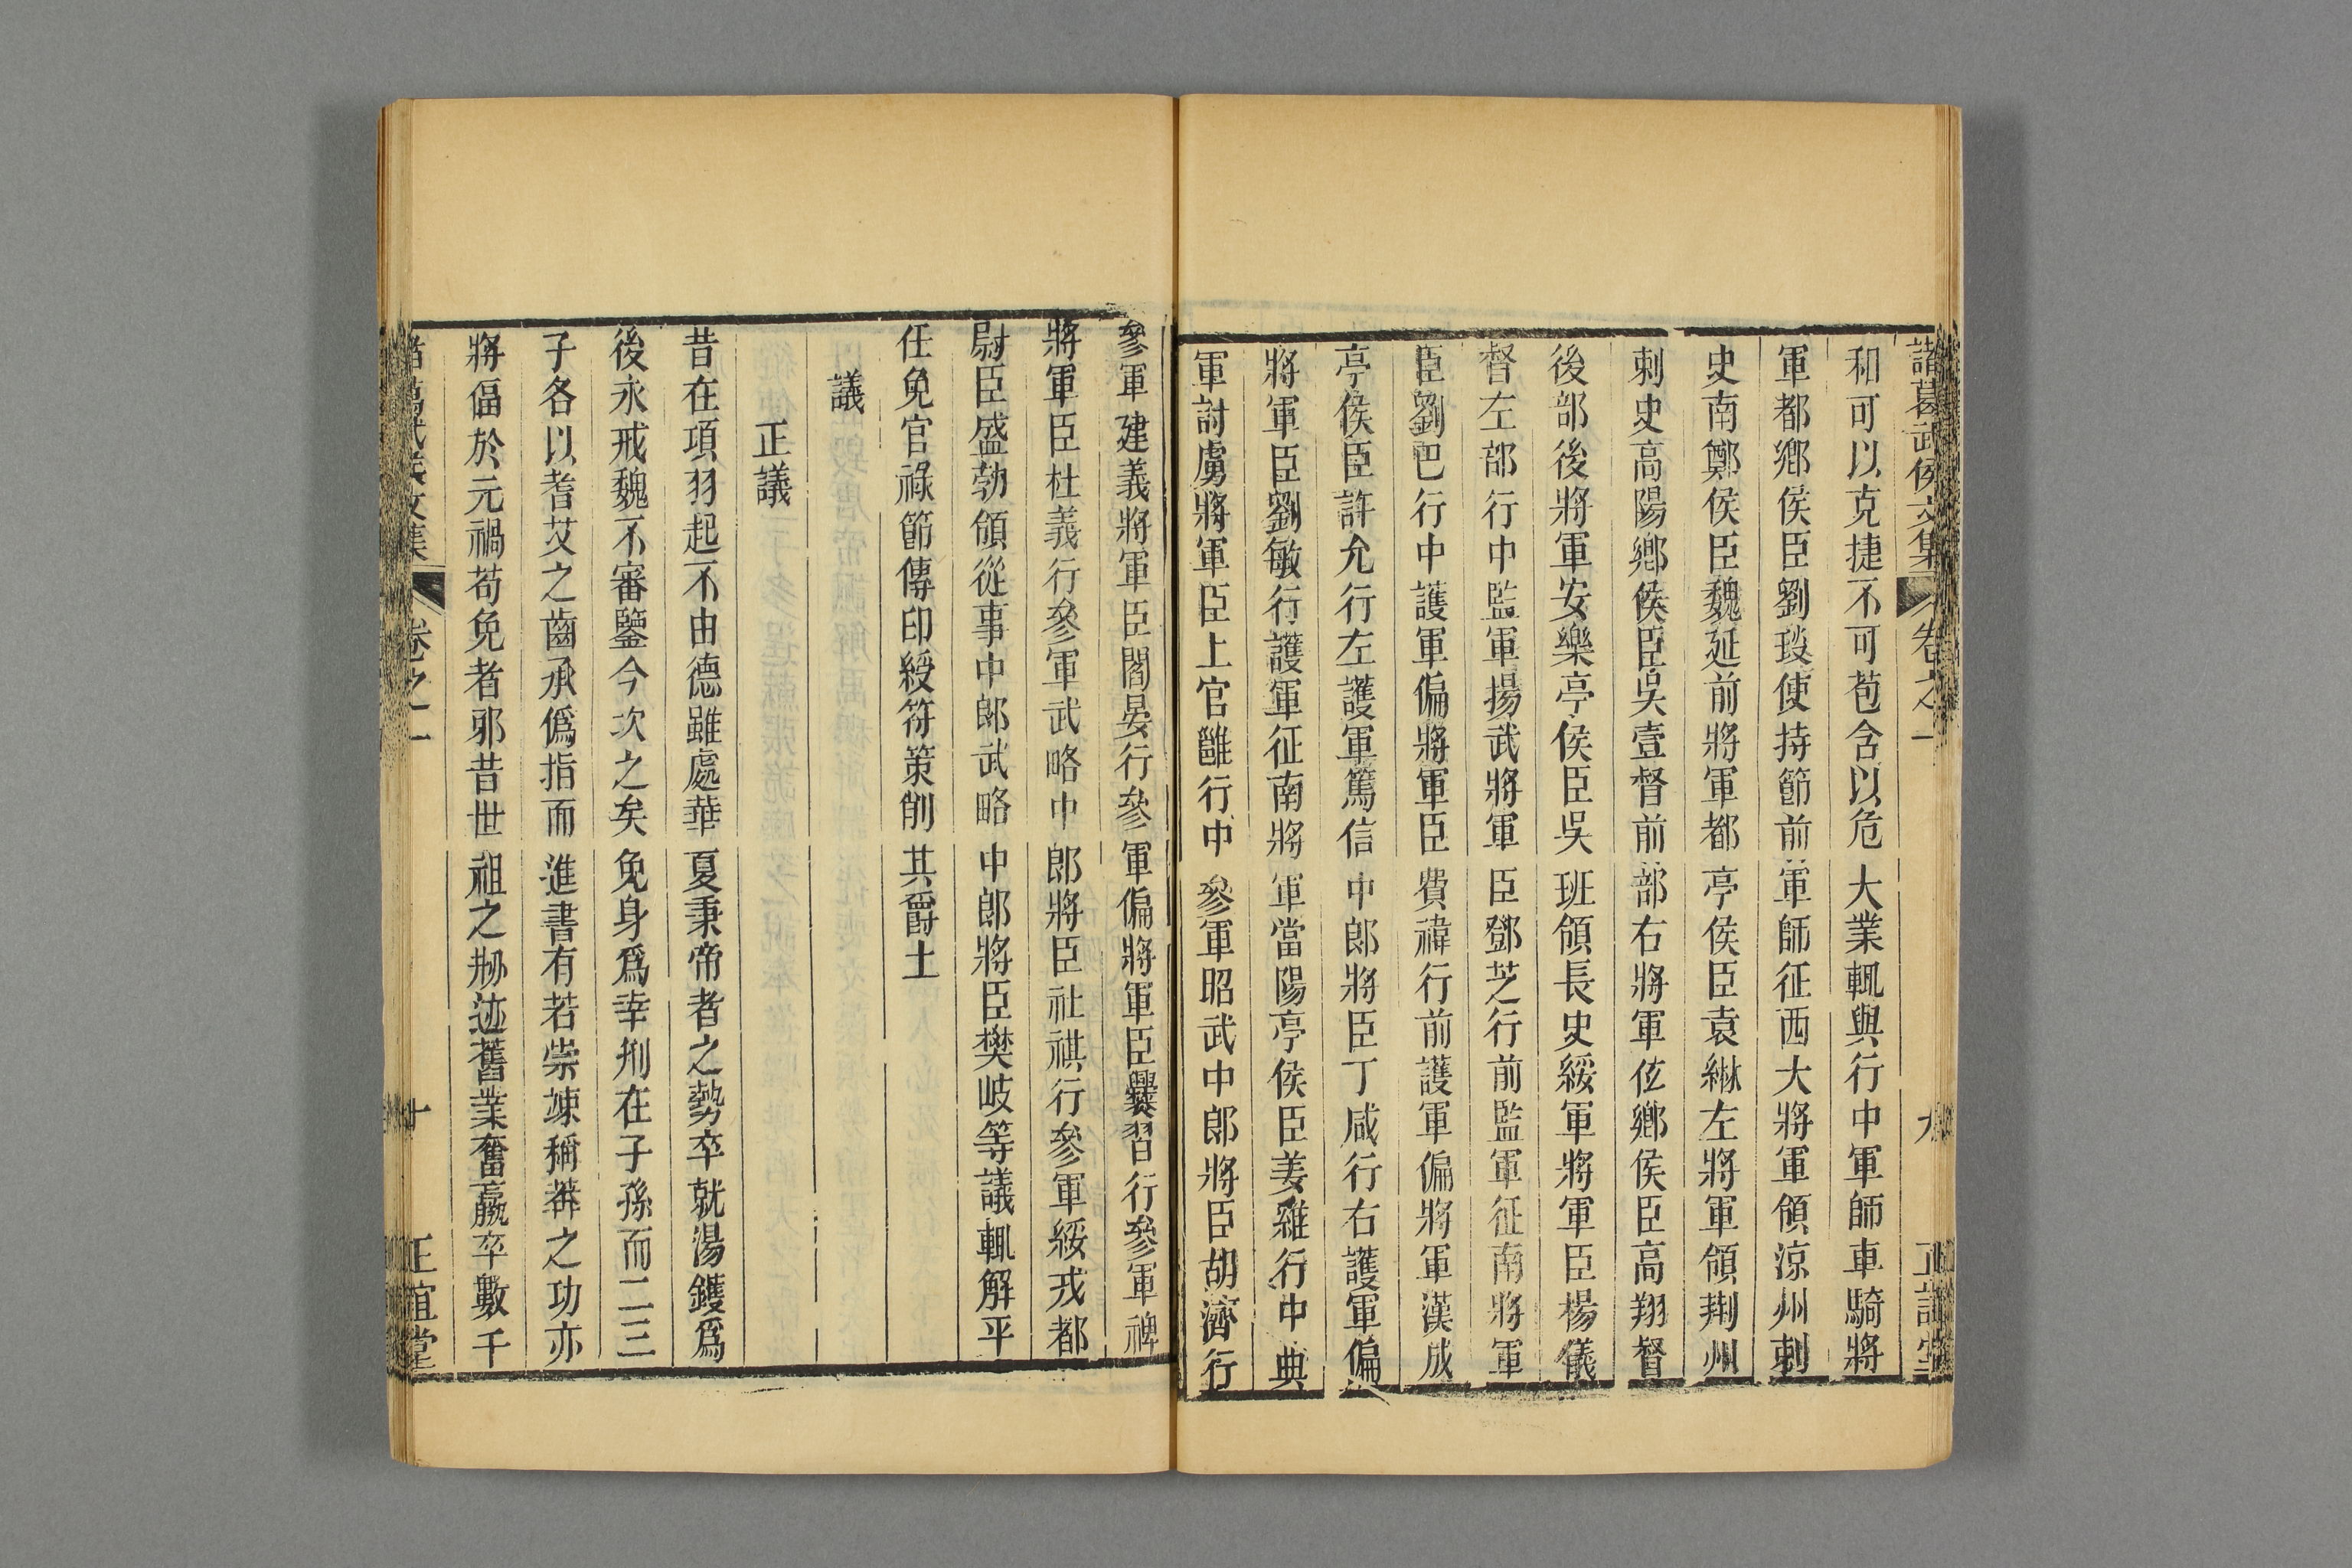 諸葛武侯文集 卷之一 九 正誼堂
和可以克捷不可苞含以危大業輒與行中軍師車騎將
軍都鄉侯臣劉琰使持節前軍師征西大將軍領涼州刺
史南鄭侯臣魏延前將軍都亭侯臣袁綝左將軍領荆州
刺史高陽鄉侯臣吳壹督前部右將軍伭鄉侯臣高翔督
後部後將軍安樂亭侯臣吳班領長史綏軍將軍臣楊儀
督左部行中監軍揚武將軍臣鄧芝行前監軍征南將軍
臣劉巴行中護軍偏將軍臣費禕行前護軍偏將軍漢成
亭侯臣許允行左護軍篤信中郎將臣丁咸行右護軍偏
將軍臣劉敏行護軍征南將軍當陽亭侯臣姜維行中典
軍討虜將軍臣上官雝行中參軍昭武中郎將臣胡濟行
參軍建義將軍臣閻晏行參軍偏將軍臣爨習行參軍裨
將軍臣杜義行參軍武略中郎將臣社祺行參軍綏戎都
尉臣盛勃領從事中郎武略中郎將臣樊岐等議輒解平
任免官祿節傳印綬符策削其爵土
議
正議
昔在項羽起不由德雖處華夏秉帝者之勢卒就湯鑊爲
後永戒魏不審鑒今次之矣免身爲幸刑在子孫而二三
子各以耆艾之齒承僞指而進書有若崇竦稱莽之功亦
將偪於元禍苟免者邪昔世祖之刱迹舊業奮羸卒數千
諸葛武侯文集 卷之一 十 正誼堂